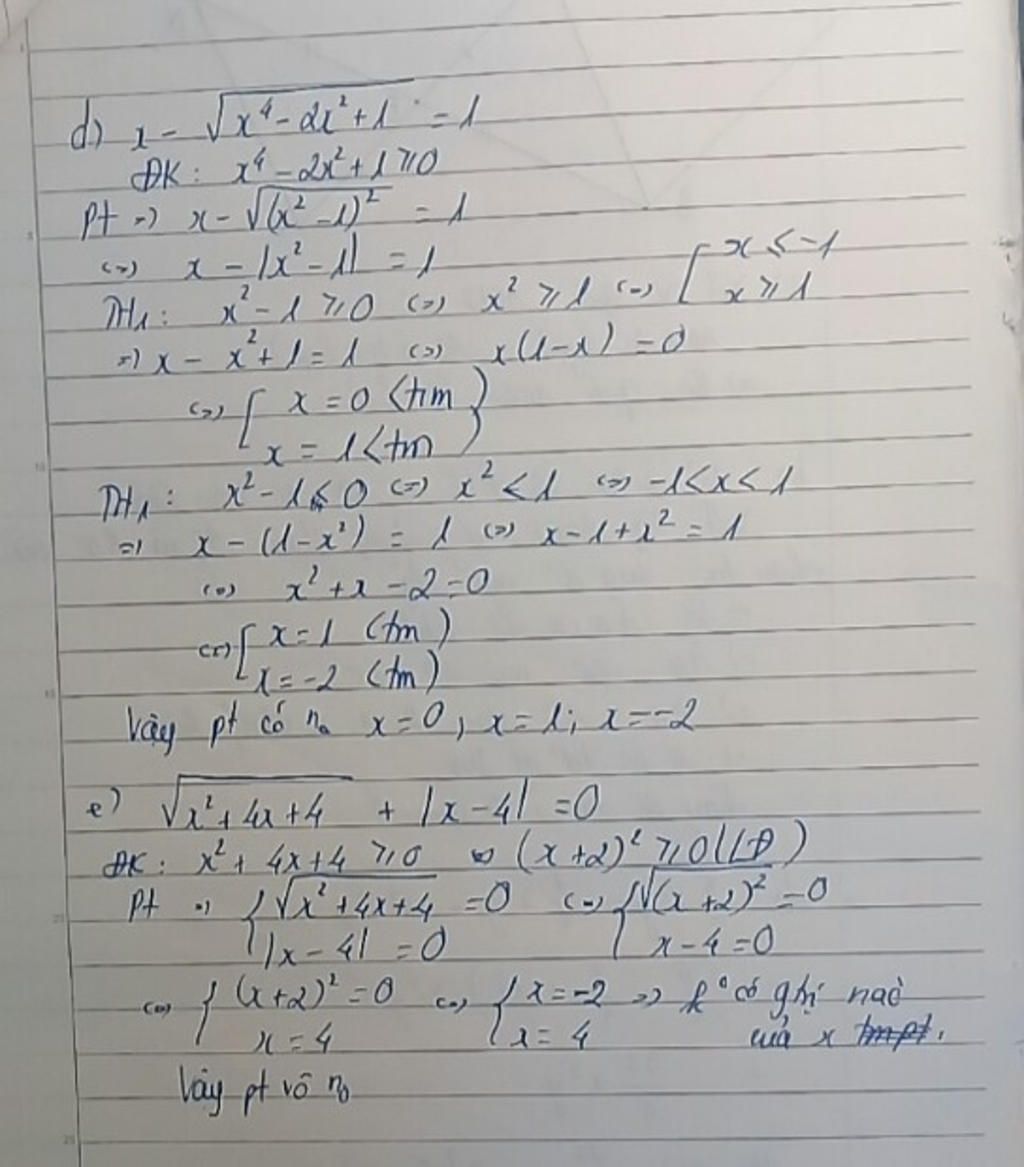 d) x - √(x⁴ - 2x² + 1) = 1
ĐK: x⁴ - 2x² + 1 ≥ 0
Pt => x - √(x² - 1)² = 1
<=> x - |x² - 1| = 1
TH1: x² - 1 ≥ 0 <=> x² ≥ 1 <=> [ x ≤ -1
x ≥ 1
=> x - x² + 1 = 1 <=> x(1 - x) = 0
<=> [ x = 0 (tm)
x = 1 (tm)
TH1: x² - 1 < 0 <=> x² < 1 <=> -1 < x < 1
=> x - (1 - x²) = 1 <=> x - 1 + x² = 1
<=> x² + x - 2 = 0
<=> [ x = 1 (tm)
x = -2 (tm)
Vậy pt có n₀ x = 0, x = 1; x = -2
e) √(x² + 4x + 4) + |x - 4| = 0
ĐK: x² + 4x + 4 ≥ 0 <=> (x + 2)² ≥ 0 (LĐ)
Pt => { √(x² + 4x + 4) = 0 <=> { √(x + 2)² = 0
|x - 4| = 0 x - 4 = 0
<=> { (x + 2)² = 0 <=> { x = -2 => k° có ghị naò
x = 4 x = 4 của x tmpt.
Vậy pt vô n₀